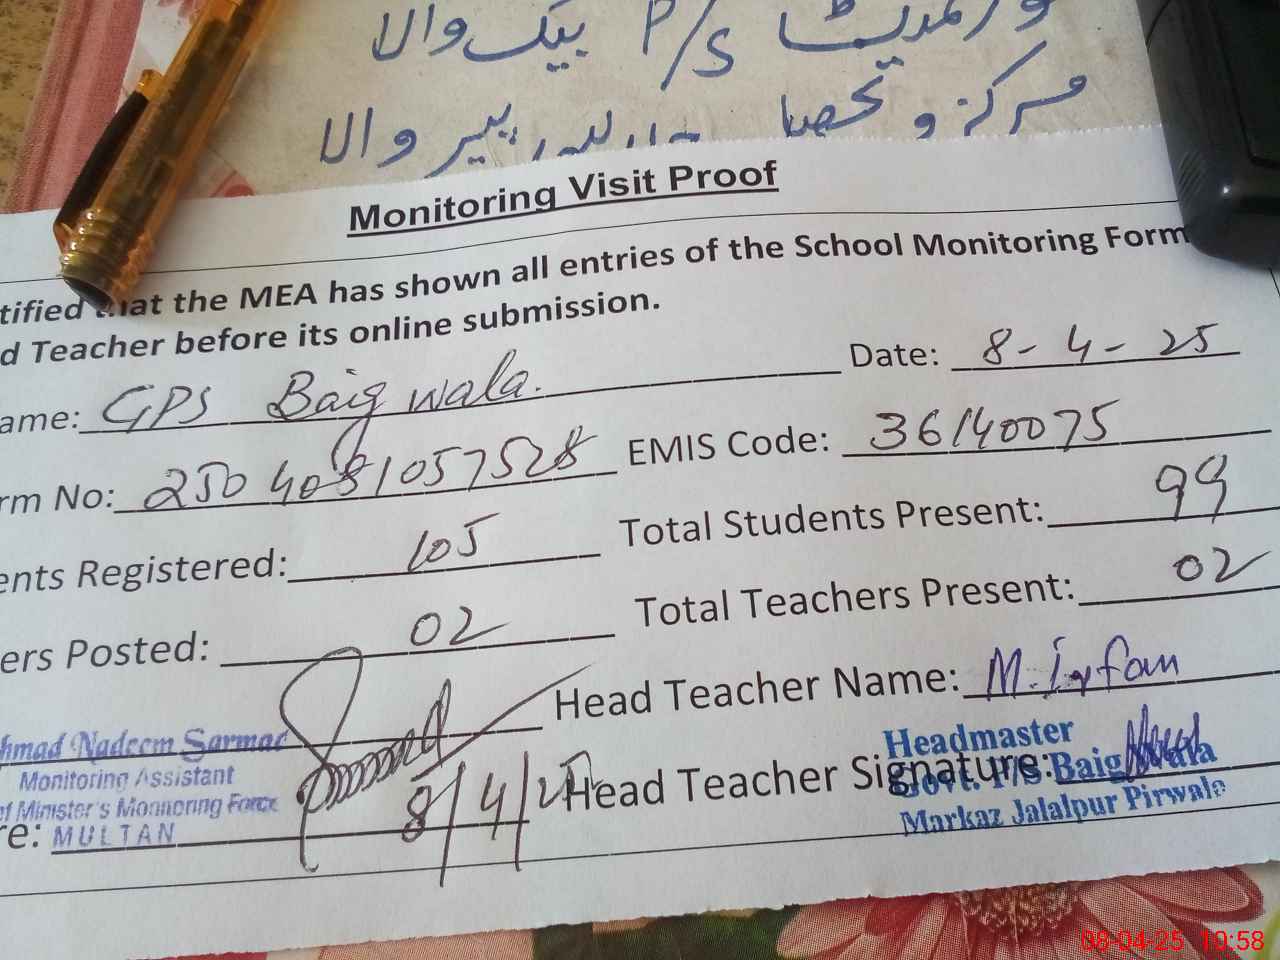 گورنمنٹ P/S بیگ والا
مرکز و تحصیل جلالپور پیر والا
Monitoring Visit Proof
tified that the MEA has shown all entries of the School Monitoring Form
d Teacher before its online submission.
ame: GPS Baig wala. Date: 8-4-25
rm No: 2504081057528 EMIS Code: 36140075
ents Registered: 105 Total Students Present: 99
ers Posted: 02 Total Teachers Present: 02
Head Teacher Name: M.Irfan
hmad Nadeem Sarmad
Monitoring Assistant
ef Minister's Monitoring Force
re: MULTAN 8/4/25 Head Teacher Signature:
Headmaster
Govt. P/S Baig Wala
Markaz Jalalpur Pirwala
08-04-25 10:58